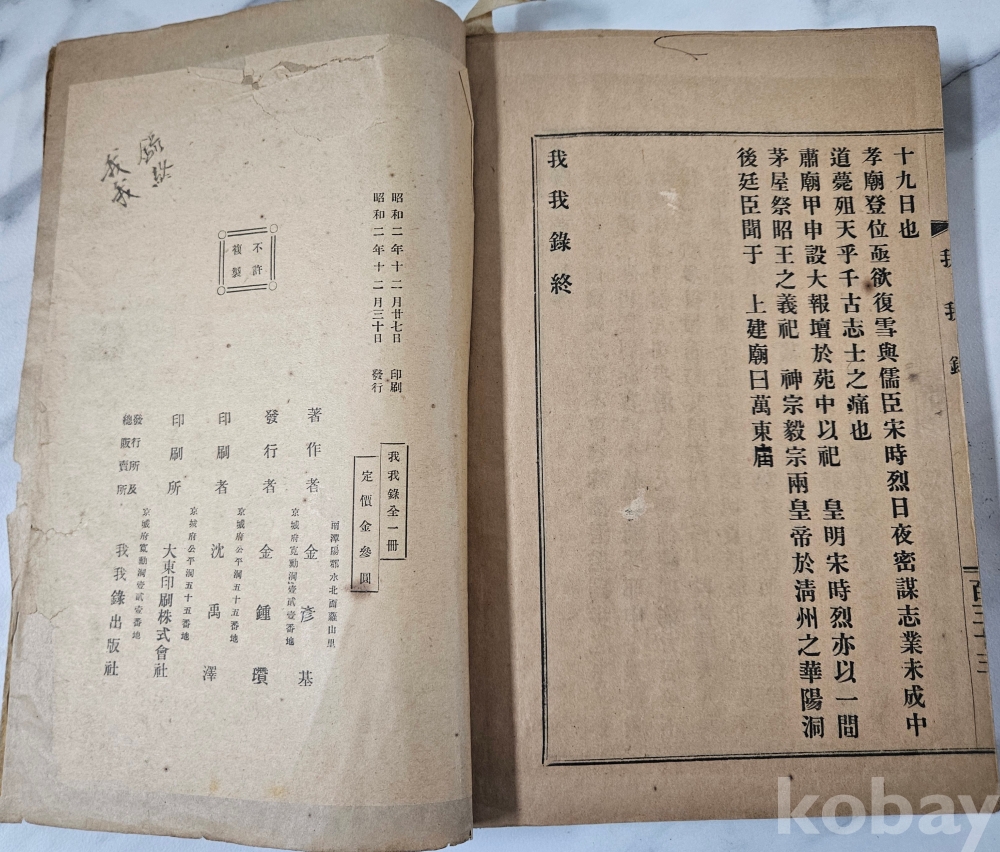 十九日也
孝廟登位亟欲復雪與儒臣宋時烈日夜密謀志業未成中
道薨殂天乎千古志士之痛也
肅廟甲申設大報壇於苑中以祀 皇明宋時烈亦以一間
茅屋祭昭王之義祀 神宗毅宗兩皇帝於淸州之華陽洞
後廷臣聞于 上建廟曰萬東庙
我我錄終
我我錄
百三十三
昭和二年十二月廿七日 印刷
昭和二年十二月三十日 發行
不許
複製
我我錄全一冊
定價金參圓
潭陽郡水北面 山里
著作者 金彦基
京城府寬勳洞壹貳壹番地
發行者 金鍾瓚
京城府公平洞五十五番地
印刷者 沈禹澤
京城府公平洞五十五番地
印刷所 大東印刷株式會社
京城府寬勳洞壹貳壹番地
發行所及
總販賣所 我我錄出版社
錄終
我我
kobay